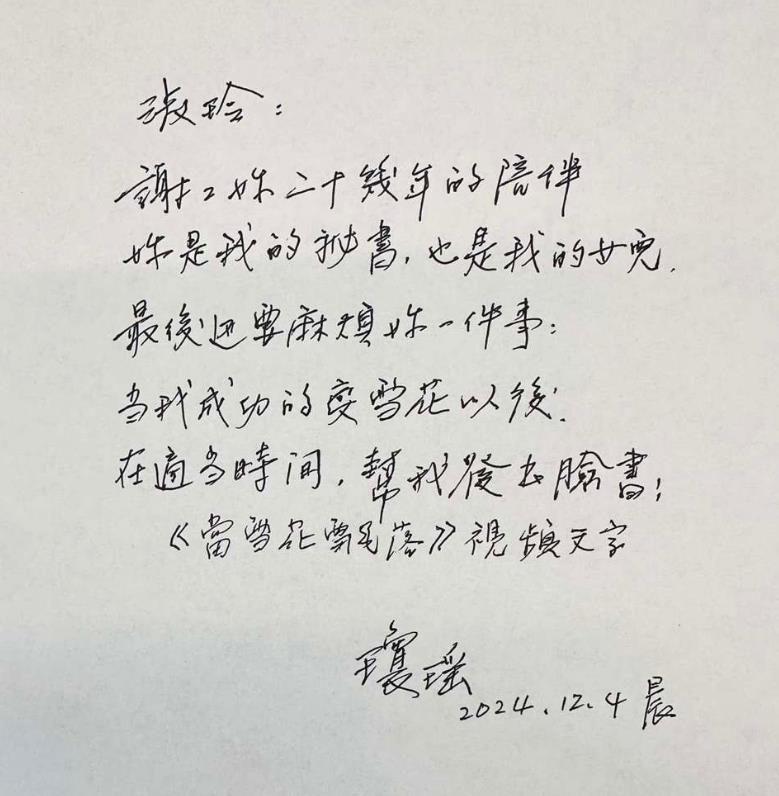 淑玲：
謝謝妳二十幾年的陪伴
妳是我的祕書，也是我的女兒．
最後还要麻煩妳一件事：
当我成功的变雪花以後．
在適当時间，幫我發出臉書：
《當雪花飄落》視頻文字
瓊瑤
2024.12.4 晨